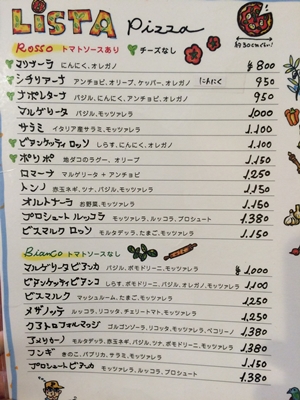 LISTA Pizza
Rosso トマトソースあり チーズなし
約30cmくらい!
マリナーラ にんにく、オレガノ ¥800
シチリアーナ アンチョビ、オリーブ、ケッパー、オレガノ にんにく 950
ナポレターナ バジル、にんにく、アンチョビ、オレガノ 950
マルゲリータ バジル、モッツァレラ 1,000
サラミ イタリア産サラミ、モッツァレラ 1,100
ビアンケッティ ロッソ しらす、にんにく、オレガノ 1,100
ポリポ 地ダコのラグー、オリーブ 1,150
ロマーナ マルゲリータ + アンチョビ 1,250
トンノ 赤玉ネギ、ツナ、バジル、モッツァレラ 1,150
オルトナーラ お野菜、モッツァレラ 1,150
プロシュート ルッコラ モッツァレラ、ルッコラ、プロシュート 1,380
ビスマルク ロッソ モルタデッラ、たまご、モッツァレラ 1,150
Bianco トマトソースなし
マルゲリータ ビアンカ バジル、ポモドリーニ、モッツァレラ ¥1,000
ビアンケッティ ビアンコ しらす、ポモドリーニ、バジル、オレガノ、モッツァレラ 1,100
ビスマルク マッシュルーム、たまご、モッツァレラ 1,250
メザノッテ ルッコラ、リコッタ、チェリートマト、モッツァレラ 1,250
クアトロフォルマッジ ゴルゴンゾーラ、リコッタ、モッツァレラ、ペコリーノ 1,380
アメリカーノ モルタデッラ、赤玉ネギ、バジル、ツナ、ポモドリーニ、モッツァレラ 1,380
フンギ きのこ、パプリカ、サラミ、モッツァレラ 1,150
プロシュート ビアンカ モッツァレラ、ルッコラ、プロシュート 1,380